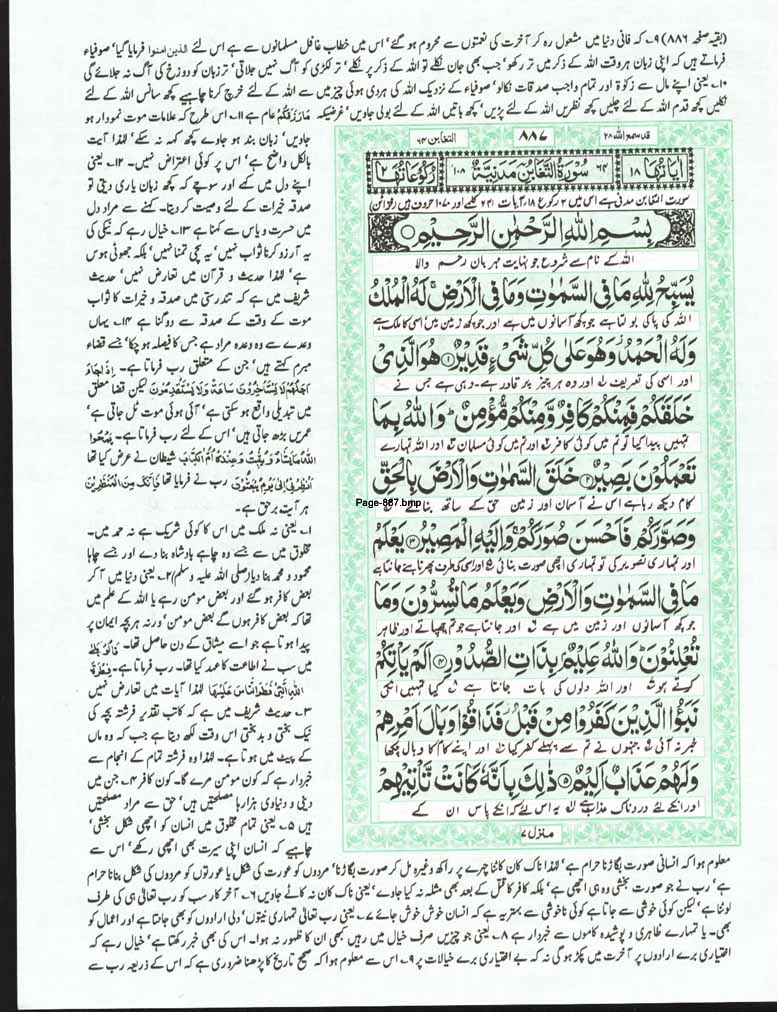 (بقیہ صفحہ ۸۸۶) ۹۔ کہ فانی دنیا میں مشغول رہ کر آخرت کی نعمتوں سے محروم ہو گئے' اس میں خطاب غافل مسلمانوں سے ہے اس لئے الذین امنوا فرمایا گیا' صوفیاء
فرماتے ہیں کہ اپنی زبان ہر وقت اللہ کے ذکر میں تر رکھو' جب بھی جان نکلے تو اللہ کے ذکر پر نکلے' تر لکڑی کو آگ نہیں جلاتی' تر زبان کو دوزخ کی آگ نہ جلائے گی
۱۰۔ یعنی اپنے مال سے زکوٰۃ اور تمام واجب صدقات نکالو' صوفیاء کے نزدیک اللہ کی ہر دی ہوئی چیز میں سے اللہ کے لئے خرچ کرنا چاہیے کچھ سانس اللہ کے لئے
نکلیں کچھ قدم اللہ کے لئے چلیں کچھ نظریں اللہ کے لئے پڑیں' کچھ باتیں اللہ کے لئے بولی جاویں' غرضیکہ مَا رَزَقْنٰكُمْ عام ہے ۱۱۔ اس طرح کہ علامات موت نمودار ہو
جاویں' زبان بند ہو جاوے کچھ کہہ نہ سکے' لہٰذا آیت
بالکل واضح ہے' اس پر کوئی اعتراض نہیں۔ ۱۲۔ یعنی
اپنے دل میں کہے اور سوچے کہ کچھ زبان یاری دیتی تو
صدقہ خیرات کے لئے وصیت کر دیتا۔ کہنے سے مراد دل
میں حسرت و یاس سے کہنا ہے ۱۳۔ خیال رہے کہ نیکی کی
یہ آرزو کرنا ثواب نہیں' یہ سچی تمنا نہیں' بلکہ جھوٹی ہوس
ہے' لہٰذا حدیث و قرآن میں تعارض نہیں' حدیث
شریف میں ہے کہ تندرستی میں صدقہ و خیرات کا ثواب
موت کے وقت کے صدقہ سے دو گنا ہے ۱۴۔ یہاں
وعدے سے وہ وعدہ مراد ہے جس کا فیصلہ ہو چکا' جسے قضاء
مبرم کہتے ہیں' جن کے متعلق رب فرماتا ہے۔ اِذَا جَآءَ
اَجَلُهُمْ لَا يَسْتَاْخِرُوْنَ سَاعَةً وَّلَا يَسْتَقْدِمُوْنَ لیکن قضا معلق
میں تبدیلی واقع ہو سکتی ہے' آئی ہوئی موت ٹل جاتی ہے'
عمریں بڑھ جاتی ہیں' اس کے لئے رب فرماتا ہے۔ يَمْحُوا
اللّٰهُ مَا يَشَآءُ وَيُثْبِتُ وَعِنْدَهٗ اُمُّ الْكِتٰبِ شیطان نے عرض کیا تھا
اَنْظِرْنِيْ اِلٰى يَوْمِ يُبْعَثُوْنَ رب نے فرمایا تھا فَاِنَّكَ مِنَ الْمُنْظَرِيْنَ
ہر آیت برحق ہے۔
۱۔ یعنی نہ ملک میں اس کا کوئی شریک ہے نہ حمد میں۔
مخلوق میں سے جسے وہ چاہے بادشاہ بنا دے اور جسے چاہا
محمود و محمد بنا دیا (صلی اللہ علیہ وسلم) ۲۔ یعنی دنیا میں آ کر
بعض کافر ہو گئے اور بعض مومن رہے یا اللہ کے علم میں
تھا کہ بعض کافر ہوں گے بعض مومن' ورنہ ہر بچہ ایمان پر
پیدا ہوتا ہے جو اسے میثاق کے دن حاصل تھا۔
میں سب نے اطاعت کا عہد کیا تھا۔ رب فرماتا ہے۔ فِطْرَةَ
اللّٰهِ الَّتِيْ فَطَرَ النَّاسَ عَلَيْهَا لہٰذا آیات میں تعارض نہیں
۳۔ حدیث شریف میں ہے کہ کاتب تقدیر فرشتہ بچہ کی
نیک بختی و بد بختی اس وقت لکھ دیتا ہے جب کہ وہ ماں
کے پیٹ میں ہوتا ہے۔ لہٰذا وہ فرشتہ تمام کے انجام سے
خبردار ہے کہ کون مومن مرے گا۔ کون کافر ۴۔ جن میں
دینی و دنیاوی ہزارہا مصلحتیں ہیں' حق سے مراد مصلحتیں
ہیں ۵۔ یعنی تمام مخلوق میں انسان کو اچھی شکل بخشی'
چاہیے کہ انسان اپنی سیرت بھی اچھی رکھے' اس سے
قد سمع اللہ ۲۸
۸۸۷
التغابن ۶۴
اٰيَاتُهَا ۱۸
۶۴ سُوْرَةُ التَّغَابُنِ مَدَنِيَّةٌ ۱۰۸
رُكُوْعَاتُهَا ۲
سورت التغابن مدنی ہے اس میں ۲ رکوع ۱۸ آیات ۲۴۱ کلمے اور ۱۰۷۰ حروف ہیں (خزائن)
بِسْمِ اللّٰهِ الرَّحْمٰنِ الرَّحِيْمِ
اللہ کے نام سے شروع جو نہایت مہربان رحم والا
يُسَبِّحُ لِلّٰهِ مَا فِي السَّمٰوٰتِ وَمَا فِي الْاَرْضِ ۚ لَهُ الْمُلْكُ
اللہ کی پاکی بولتا ہے جو کچھ آسمانوں میں ہے اور جو کچھ زمین میں اسی کا ملک ہے
وَلَهُ الْحَمْدُ ۡ وَهُوَ عَلٰى كُلِّ شَيْءٍ قَدِيْرٌ ۝۱ هُوَ الَّذِيْ
اور اسی کی تعریف اور وہ ہر چیز پر قادر ہے۔ وہی ہے جس نے
خَلَقَكُمْ فَمِنْكُمْ كَافِرٌ وَّمِنْكُمْ مُّؤْمِنٌ ؕ وَاللّٰهُ بِمَا
تمہیں پیدا کیا تو تم میں کوئی کافر اور تم میں کوئی مسلمان اور اللہ تمہارے
تَعْمَلُوْنَ بَصِيْرٌ ۝۲ خَلَقَ السَّمٰوٰتِ وَالْاَرْضَ بِالْحَقِّ
کام دیکھ رہا ہے اس نے آسمان اور زمین حق کے ساتھ بنائے
Page-887.bmp
وَصَوَّرَكُمْ فَاَحْسَنَ صُوَرَكُمْ ۚ وَاِلَيْهِ الْمَصِيْرُ ۝۳ يَعْلَمُ
اور تمہاری تصویر کی تو تمہاری اچھی صورت بنائی اور اسی کی طرف پھرنا ہے جانتا ہے
مَا فِي السَّمٰوٰتِ وَالْاَرْضِ وَيَعْلَمُ مَا تُسِرُّوْنَ وَمَا
جو کچھ آسمانوں اور زمین میں ہے اور جانتا ہے جو تم چھپاتے اور ظاہر
تُعْلِنُوْنَ ؕ وَاللّٰهُ عَلِيْمٌۢ بِذَاتِ الصُّدُوْرِ ۝۴ اَلَمْ يَاْتِكُمْ
کرتے ہو اور اللہ دلوں کی بات جانتا ہے کیا تمہیں انکی
نَبَؤُا الَّذِيْنَ كَفَرُوْا مِنْ قَبْلُ ۡ فَذَاقُوْا وَبَالَ اَمْرِهِمْ
خبر نہ آئی جنہوں نے تم سے پہلے کفر کیا اور اپنے کام کا وبال چکھا
وَلَهُمْ عَذَابٌ اَلِيْمٌ ۝۵ ذٰلِكَ بِاَنَّهٗ كَانَتْ تَّاْتِيْهِمْ
اور انکے لئے دردناک عذاب ہے یہ اس لئے کہ انکے پاس ان کے
منزل ۷
معلوم ہوا کہ انسانی صورت بگاڑنا حرام ہے' لہٰذا ناک کان کاٹنا چہرے پر راکھ وغیرہ مل کر صورت بگاڑنا' مردوں کو عورت کی شکل یا عورتوں کو مردوں کی شکل بنانا حرام
ہے' رب نے جو صورت بخشی وہ ہی اچھی ہے' بلکہ کافر کا قتل کے بعد بھی مثلہ نہ کیا جاوے' یعنی ناک کان نہ کاٹے جاویں ۶۔ آخر کار سب کو رب تعالیٰ ہی کی طرف
لوٹنا ہے' لیکن کوئی خوشی سے جاتا ہے کوئی ناخوشی سے بہتر یہ ہے کہ انسان خوش خوش جائے ۷۔ یعنی رب تعالیٰ تمہاری نیتوں' دلی ارادوں کو بھی جانتا ہے اور اعمال کو
بھی۔ یا تمہارے ظاہری و پوشیدہ کاموں سے خبردار ہے ۸۔ یعنی جو چیزیں صرف خیال میں رہیں کبھی ان کا ظہور نہ ہوا۔ اس کی بھی خبر رکھتا ہے' خیال رہے کہ
اختیاری برے ارادوں پر آخرت میں پکڑ ہو گی نہ کہ بے اختیاری برے خیالات پر ۹۔ اس سے معلوم ہوا کہ صحیح تاریخ کا پڑھنا ضروری ہے کہ اس کے ذریعہ رب سے